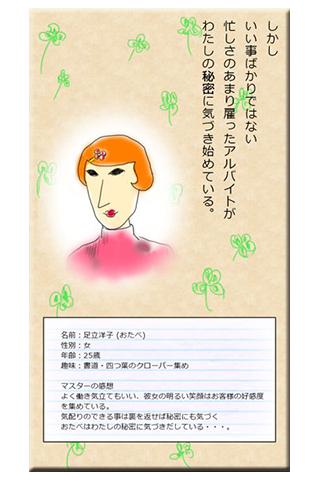 しかし
いい事ばかりではない
忙しさのあまり雇ったアルバイトが
わたしの秘密に気づき始めている。
名前：足立洋子 (おたべ)
性別：女
年齢：25歳
趣味：書道・四つ葉のクローバー集め
マスターの感想
よく働き気立てもいい、彼女の明るい笑顔はお客様の好感度
を集めている。
気配りのできる事は裏を返せば秘密にも気づく
おたべはわたしの秘密に気づきだしている・・・。